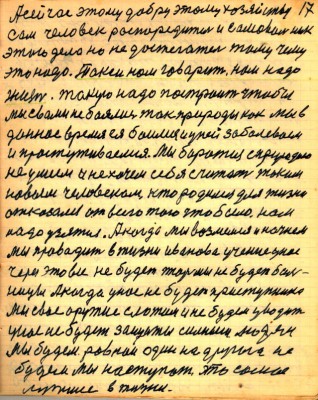 А сейчас этому добру этому хозяйству 17
сам человек распорядится и самовольник
этого дела но не достегател тому чему
это надо. Такси нам говорит, нам надо
жизнь. такую надо построит чтобы
мы с вами не боялис так природы как мы в
данное время ся боимся и ней заболеваем
и простуживаемся. Мы боротся с природою
не умеем и не хочем себя считат таким
новым человеком, кто родился для жизни
отказался от всего того это было, нам
надо взятся. А когда мы возмемся и начнем
мы проводит в жизни иванова учение, у нас
через это все не будет тюрмы не будет бол-
ницы А когда у нас не будет приступника
мы свое оружие сложим и не будем уводит
у нас не будет защиты силними людям
Мы будем ровнои один на другога не
будем Мы наступат. Это самое
лутшее в жизни.